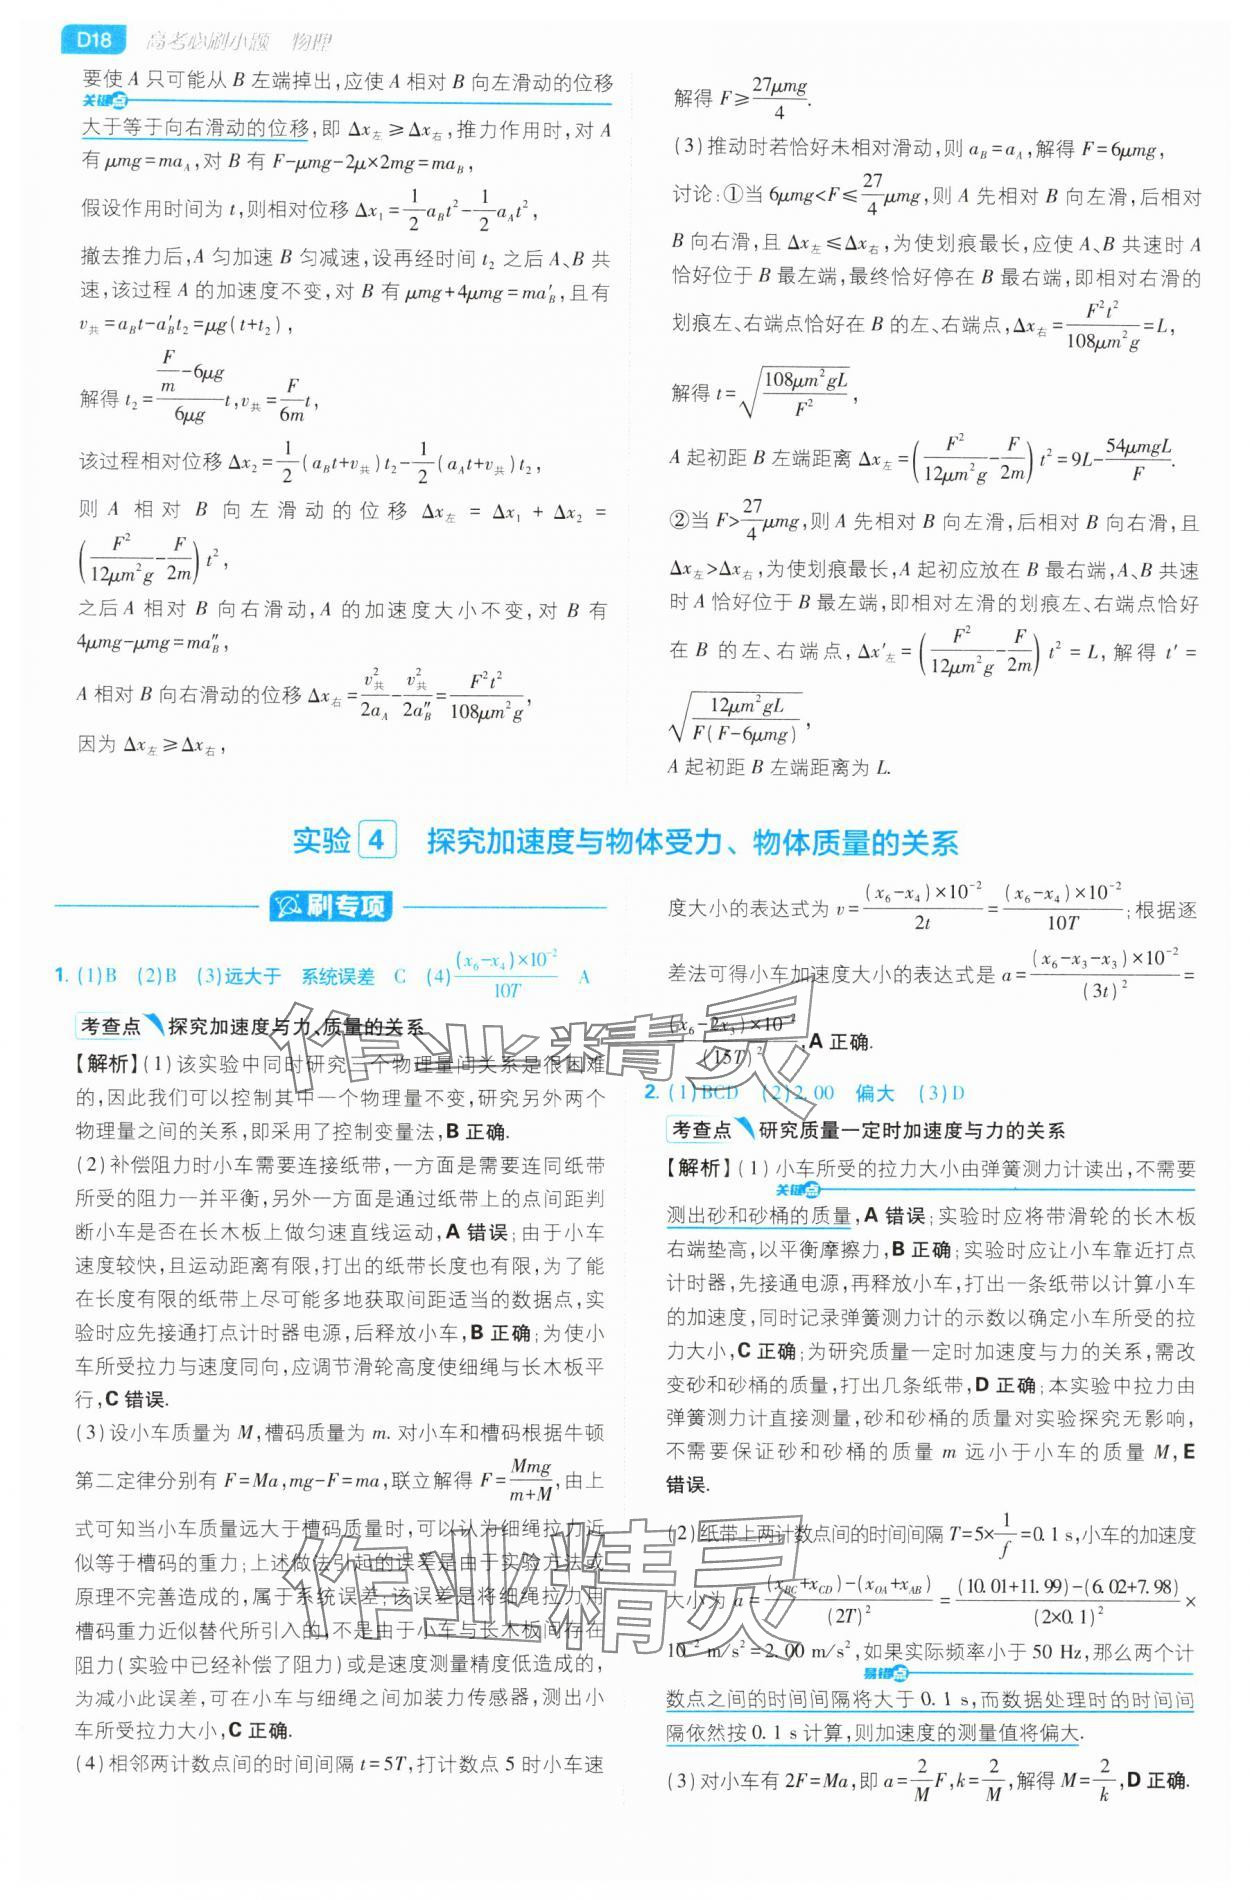 D18 高考必刷小题 物理
要使 A 只可能从 B 左端掉出,应使 A 相对 B 向左滑动的位移
关键点
大于等于向右滑动的位移,即 Δx左≥Δx右,推力作用时,对 A
有 μmg=maA,对 B 有 F-μmg-2μ×2mg=maB,
假设作用时间为 t,则相对位移 Δx1=1/2 aBt²-1/2 aAt²,
撤去推力后,A 匀加速 B 匀减速,设再经时间 t2 之后 A、B 共
速,该过程 A 的加速度不变,对 B 有 μmg+4μmg=ma′B,且有
v共=aBt-a′Bt2=μg(t+t2),
解得 t2=(F/m-6μg)/(6μg) t,v共=F/(6m) t,
该过程相对位移 Δx2=1/2(aBt+v共)t2-1/2(aAt+v共)t2,
则 A 相对 B 向左滑动的位移 Δx左 = Δx1 + Δx2 =
(F²/(12μm²g)-F/(2m)) t²,
之后 A 相对 B 向右滑动,A 的加速度大小不变,对 B 有
4μmg-μmg=ma″B,
A 相对 B 向右滑动的位移 Δx右=v共²/(2aA)-v共²/(2a″B)=F²t²/(108μm²g),
因为 Δx左≥Δx右,
解得 F≥27μmg/4.
(3)推动时若恰好未相对滑动,则 aB=aA,解得 F=6μmg,
讨论:①当 6μmg<F≤27/4 μmg,则 A 先相对 B 向左滑,后相对
B 向右滑,且 Δx左≤Δx右,为使划痕最长,应使 A、B 共速时 A
恰好位于 B 最左端,最终恰好停在 B 最右端,即相对右滑的
划痕左、右端点恰好在 B 的左、右端点,Δx右=F²t²/(108μm²g)=L,
解得 t=√(108μm²gL/F²),
A 起初距 B 左端距离 Δx左=(F²/(12μm²g)-F/(2m)) t²=9L-54μmgL/F.
②当 F>27/4 μmg,则 A 先相对 B 向左滑,后相对 B 向右滑,且
Δx左>Δx右,为使划痕最长,A 起初应放在 B 最右端,A、B 共速
时 A 恰好位于 B 最左端,即相对左滑的划痕左、右端点恰好
在 B 的左、右端点,Δx′左=(F²/(12μm²g)-F/(2m)) t²=L,解得 t′=
√(12μm²gL/(F(F-6μmg))),
A 起初距 B 左端距离为 L.
实验 4 探究加速度与物体受力、物体质量的关系
刷专项
1. (1)B (2)B (3)远大于 系统误差 C (4)(x6-x4)×10⁻²/(10T) A
考查点 探究加速度与力、质量的关系
【解析】(1)该实验中同时研究三个物理量间关系是很困难
的,因此我们可以控制其中一个物理量不变,研究另外两个
物理量之间的关系,即采用了控制变量法,B 正确.
(2)补偿阻力时小车需要连接纸带,一方面是需要连同纸带
所受的阻力一并平衡,另外一方面是通过纸带上的点间距判
断小车是否在长木板上做匀速直线运动,A 错误;由于小车
速度较快,且运动距离有限,打出的纸带长度也有限,为了能
在长度有限的纸带上尽可能多地获取间距适当的数据点,实
验时应先接通打点计时器电源,后释放小车,B 正确;为使小
车所受拉力与速度同向,应调节滑轮高度使细绳与长木板平
行,C 错误.
(3)设小车质量为 M,槽码质量为 m. 对小车和槽码根据牛顿
第二定律分别有 F=Ma,mg-F=ma,联立解得 F=Mmg/(m+M),由上
式可知当小车质量远大于槽码质量时,可以认为细绳拉力近
似等于槽码的重力;上述做法引起的误差是由于实验方法或
原理不完善造成的,属于系统误差;该误差是将细绳拉力用
槽码重力近似替代所引入的,不是由于小车与长木板间存在
阻力(实验中已经补偿了阻力)或是速度测量精度低造成的,
为减小此误差,可在小车与细绳之间加装力传感器,测出小
车所受拉力大小,C 正确.
(4)相邻两计数点间的时间间隔 t=5T,打计数点 5 时小车速
度大小的表达式为 v=(x6-x4)×10⁻²/(2t)=(x6-x4)×10⁻²/(10T);根据逐
差法可得小车加速度大小的表达式是 a=(x6-x3-x3)×10⁻²/(3t)²=
(x6-2x3)×10⁻²/(15T)²,A 正确.
2. (1)BCD (2)2.00 偏大 (3)D
考查点 研究质量一定时加速度与力的关系
【解析】(1)小车所受的拉力大小由弹簧测力计读出,不需要
关键点
测出砂和砂桶的质量,A 错误;实验时应将带滑轮的长木板
右端垫高,以平衡摩擦力,B 正确;实验时应让小车靠近打点
计时器,先接通电源,再释放小车,打出一条纸带以计算小车
的加速度,同时记录弹簧测力计的示数以确定小车所受的拉
力大小,C 正确;为研究质量一定时加速度与力的关系,需改
变砂和砂桶的质量,打出几条纸带,D 正确;本实验中拉力由
弹簧测力计直接测量,砂和砂桶的质量对实验探究无影响,
不需要保证砂和砂桶的质量 m 远小于小车的质量 M,E
错误.
(2)纸带上两计数点间的时间间隔 T=5×1/f=0.1 s,小车的加速度
大小为 a=((xBC+xCD)-(xOA+xAB))/(2T)²=((10.01+11.99)-(6.02+7.98))/(2×0.1)²×
10⁻² m/s²=2.00 m/s²,如果实际频率小于 50 Hz,那么两个计
易错点
数点之间的时间间隔将大于 0.1 s,而数据处理时的时间间
隔依然按 0.1 s 计算,则加速度的测量值将偏大.
(3)对小车有 2F=Ma,即 a=2/M F,k=2/M,解得 M=2/k,D 正确.
作业精灵
作业精灵